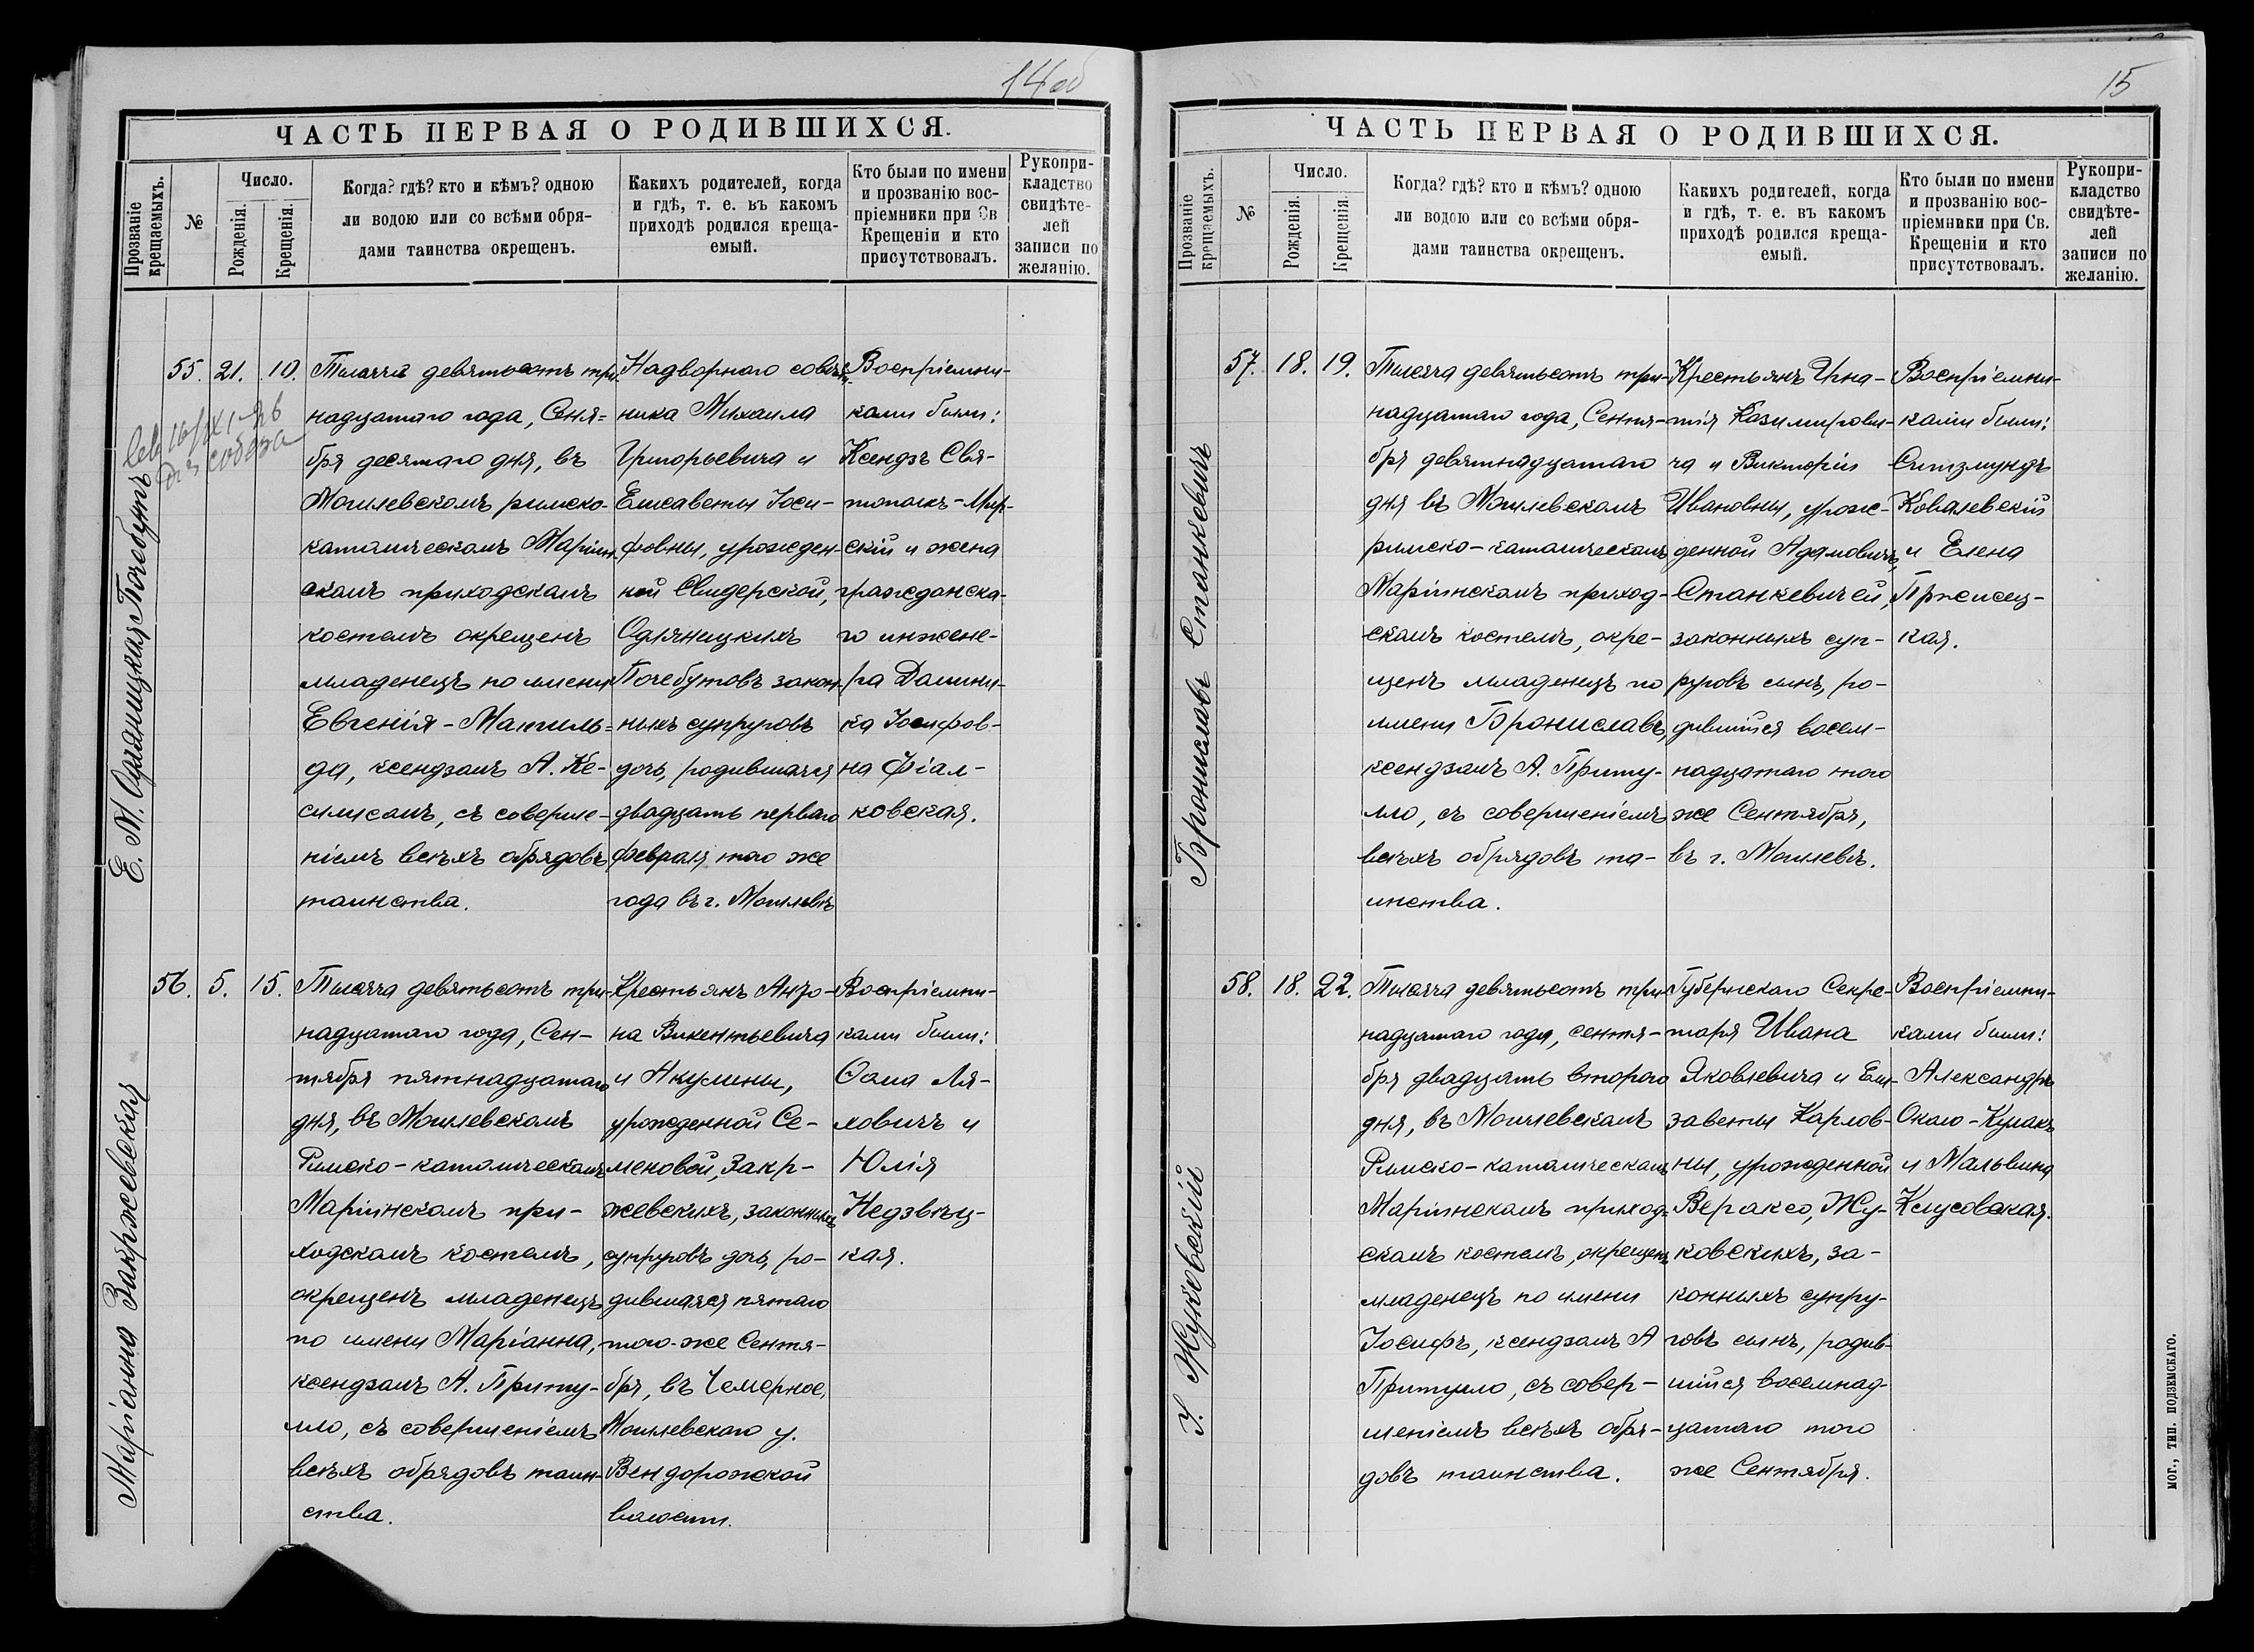 14 об
ЧАСТЬ ПЕРВАЯ О РОДИВШИХСЯ.
Прозваніе крещаемыхъ.
№
Число.
Рожденія.
Крещенія.
Когда? гдѣ? кто и кѣмъ? одною
ли водою или со всѣми обря-
дами таинства окрещенъ.
Каихъ родителей, когда
и гдѣ, т. е. въ какомъ
приходѣ родился креща-
емый.
Кто были по имени
и прозванію вос-
пріемники при Св
Крещеніи и кто
присутствовалъ.
Рукопри-
кладство
свидѣте-
лей
записи по
желанію.
Е. М. Одляницкая Почебутъ
55. 21. 10.
Тысяча девятьсотъ три-
надцатаго года, Сеня=
бря десятаго дня, въ
Могилевскомъ римско-
католическомъ Маріин-
скомъ приходскомъ
костелѣ окрещенъ
младенецъ по имени
Евгенія - Матиль=
да, ксендзомъ А. Ке-
симисомъ, съ соверше-
ніемъ всѣхъ обрядовъ
таинства.
Надворнаго совѣт-
ника Михаила
Григорьевича и
Елисаветы Іоси-
фовны, урожден-
ной Свидерской,
Одляницкихъ
Почебутовъ закон-
ныхъ супруговъ
дочь, родившаяся
двадцать перваго
февраля того же
года въ г. Могилевѣ
Воспріемни-
ками были:
Ксендзъ Свя-
тополкъ - Мир-
скій и жена
гражданска-
го инжене-
ра Домини-
ка Іосифов-
на Фіал-
ковская.
Маріанна Закржевская
56. 5. 15.
Тысяча девятьсотъ три-
надцатаго года, Сен-
тября пятнадцатаго
дня, въ Могилевскомъ
Римско-католическомъ
Маріинскомъ при-
ходскомъ костелѣ,
окрещенъ младенецъ
по имени Маріанна,
ксендзомъ А. Приту-
ло, съ совершеніемъ
всѣхъ обрядовъ таин-
ства.
Крестьянъ Анто-
на Викентьевича
и Акулины,
урожденной Се-
меновой, Закр-
жевскихъ, законныхъ
супруговъ дочь, ро-
дившаяся пятаго
того-же Сентя-
бря, въ Чемерное,
Могилевскаго у.
Вендорожской
волости.
Воспріемни-
ками были:
Ѳома Ля-
ховичъ и
Юлія
Недзвѣц-
кая.
15
ЧАСТЬ ПЕРВАЯ О РОДИВШИХСЯ.
Прозваніе крещаемыхъ.
№
Число.
Рожденія.
Крещенія.
Когда? гдѣ? кто и кѣмъ? одною
ли водою или со всѣми обря-
дами таинства окрещенъ.
Каихъ родителей, когда
и гдѣ, т. е. въ какомъ
приходѣ родился креща-
емый.
Кто были по имени
и прозванію вос-
пріемники при Св.
Крещеніи и кто
присутствовалъ.
Рукопри-
кладство
свидѣте-
лей
записи по
желанію.
Брониславъ Станкевичъ
57. 18. 19.
Тысяча девятьсотъ три-
надцатаго года, Сентя-
бря девятнадцатаго
дня въ Могилевскомъ
римско-католическомъ
Маріинскомъ приход-
скомъ костелѣ, окре-
щенъ младенецъ по
имени Брониславъ,
ксендзомъ А. Приту-
ло, съ совершеніемъ
всѣхъ обрядовъ та-
инства.
Крестьянъ Игна-
тія Казимирови-
ча и Викторіи
Ивановны, урож-
денной Адамовичъ,
Станкевичей,
законныхъ суп-
руговъ сынъ, ро-
дившійся восем-
надцатаго того
же Сентября,
въ г. Могилевѣ.
Воспріемни-
ками были:
Сигизмундъ
Ковалевскій
и Елена
Пржисец-
кая.
І. Жуковскій
58. 18. 22.
Тысяча девятьсотъ три-
надцатаго года, сентя-
бря двадцать второго
дня, въ Могилевскомъ
Римско-католическомъ
Маріинскомъ приход-
скомъ костелѣ, окрещенъ
младенецъ по имени
Іосифъ, ксендзомъ А
Притуло, съ совер-
шеніемъ всѣхъ обря-
довъ таинства.
Губернскаго Секре-
таря Ивана
Яковлевича и Ели-
заветы Карлов-
ны, урожденной
Вераксо, Жу-
ковскихъ, за-
конныхъ супру-
говъ сынъ, родив-
шійся восемнад-
цатаго того
же Сентября.
Воспріемни-
ками были:
Александръ
Около-Кулакъ
и Мальвина
Клусовская.
МОГ., ТИП. ПОДЗЕМСКАГО.